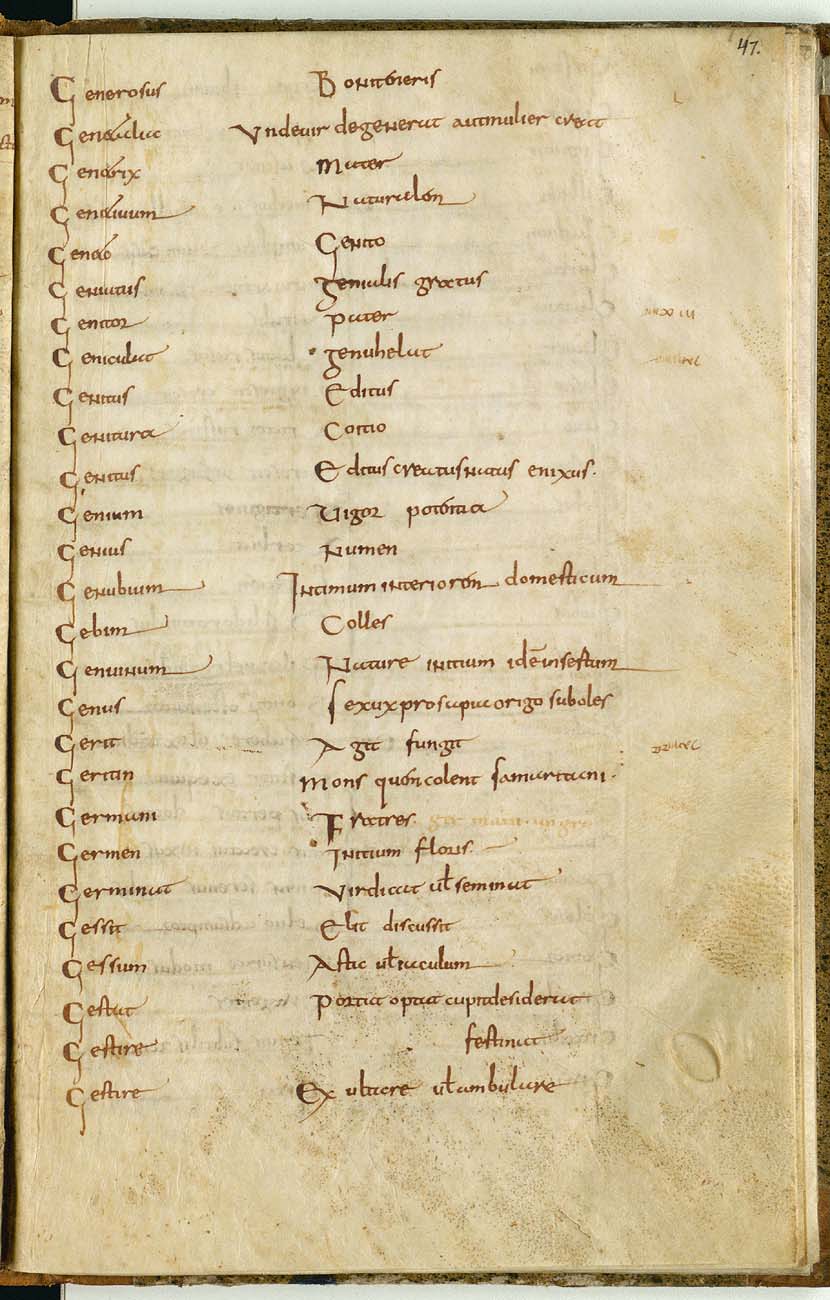 47.
Generosus Boni generis
Genitalia Unde vir degenerat aut mulier creat
Genetrix Mater
Genitivum Naturalem
Genito
Genitus genialis gratus
Genitor pater
Geniculat genuhelat
Genitus Editus
Genitura Cotio
Genitus Editus creatus natus enixus.
Genium Vigor potentia
Genius Numen
Genubium Intimum interiorem domesticum
Gebim Colles
Genuinum Nature initium idē insestum
Genus Sexux prosapia origo suboles
Gerit Agit fungit
Mons quem colent samaritani.
Germani Fratres
Germen Initium floris
Germinat Virdicat uł seminat
Gessit Egit discussit
Gessum Astic uł iaculum
Gestat Portat optat cupit desiderat
Gestire festinat
Gestire Exultare uł ambulare